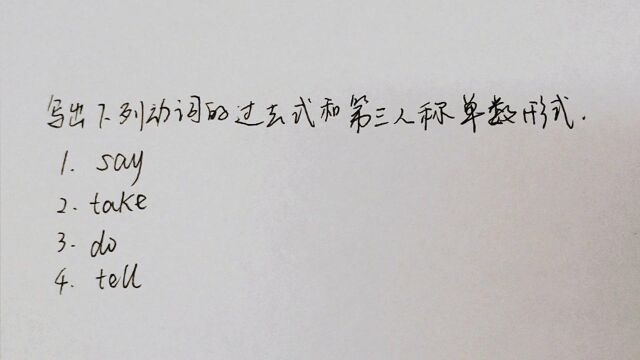 写出下列动词的过去式和第三人称单数形式.
1. say
2. take
3. do
4. tell